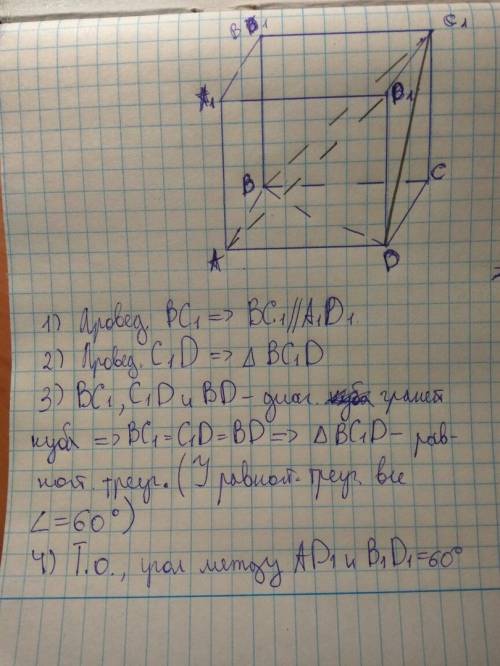 B B1 C1
A1 D1
B C
A D
1) Провед. BC1 => BC1//A1D1.
2) Провед. C1D => △ BC1D
3) BC1, C1D и BD – диаг. куба граней
куба => BC1=C1D=BD => △ BC1D – рав-
ност. треуг. (У равност. треуг. все
∠=60°)
4) Т.О., угол между AD1 и B1D1=60°